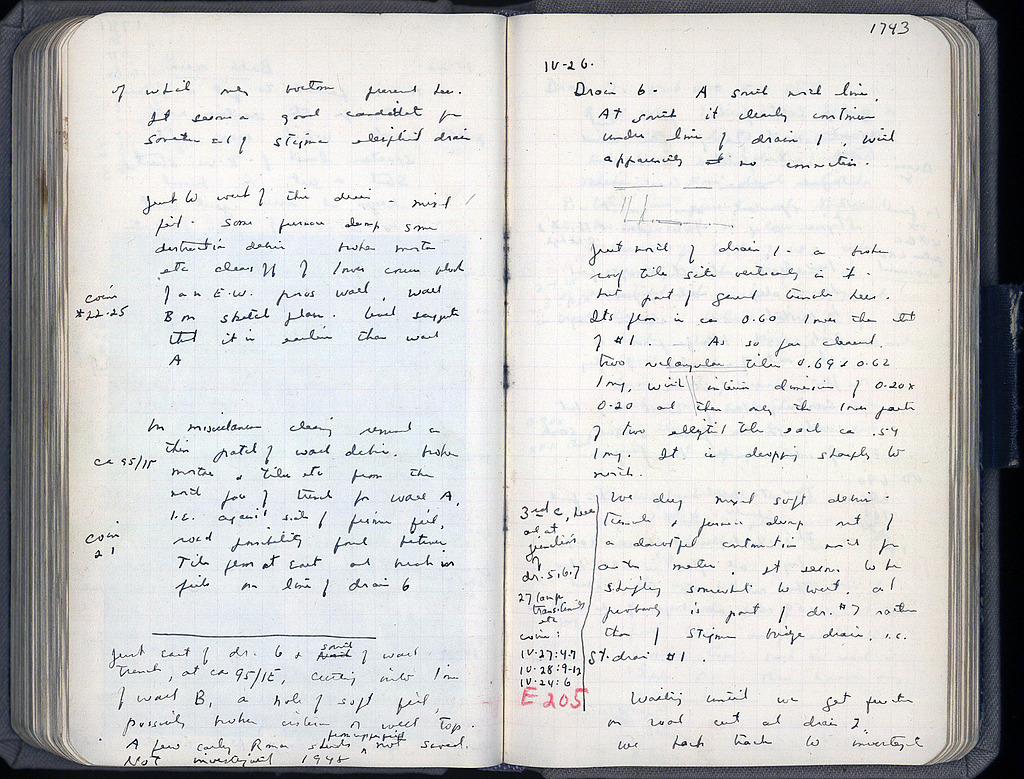 of which only bottom present here.
It seems a good candidate for
south end of stigma elliptical drain
Just to west of this drain - mixed
fill. Some furnace dump some
destruction debris broken mortar
etc clears off of lower course block
of an E.W. poros wall, wall
B on sketch plan.
that it is earlier than wall
A
coin
*22-25
In miscellaneous clearing around in
this patch of wall debris. broken
mortar, tiles etc from the
north face of trench for wall A,
i.e. against side of furnace fill,
road possibility found between
Tile floor at east and
fill on line of drain 6
ca 95/15
coin
21
Just east of dr. 6 & south of wall
trench, at ca 95/15, cutting into line
of wall B, a hole of soft fill,
possibly broken cistern or well top.
A few early Roman sherds from upper fill not saved.
Not investigated 1948
1743
IV-26.
Drain 6. A south north line.
At south it clearly continues
under line of drain 1, with
apparently no connection.
Just north of drain 1 - a broken
roof tile sits vertically in it.
but part of general trouble here.
Its floor is ca 0.60 lower than that
of #1. As so far cleared,
two rectangular tiles 0.69 x 0.62
long, with interior dimension of 0.20 x
0.20 and then only the lower parts
of two elliptical tiles each ca .54
long. It is dropping sharply to
north.
3rd c, here
and at
junction
of
dr. 5, 6, 7
27 lamp
transitional
etc
coins:
IV-27:4-7
IV-28:9-12
IV-24:6
E 205
We dig mixed soft debris -
trench & furnace dump out of
a doubtful continuation north for
another meter. It seems to be
shifting somewhat to west, and
probably is part of dr. #7 rather
than of Stigma bridge drain, i.e.
St. drain #1.
Waiting until we get further
on road cut at drain 2,
we back track to investigate